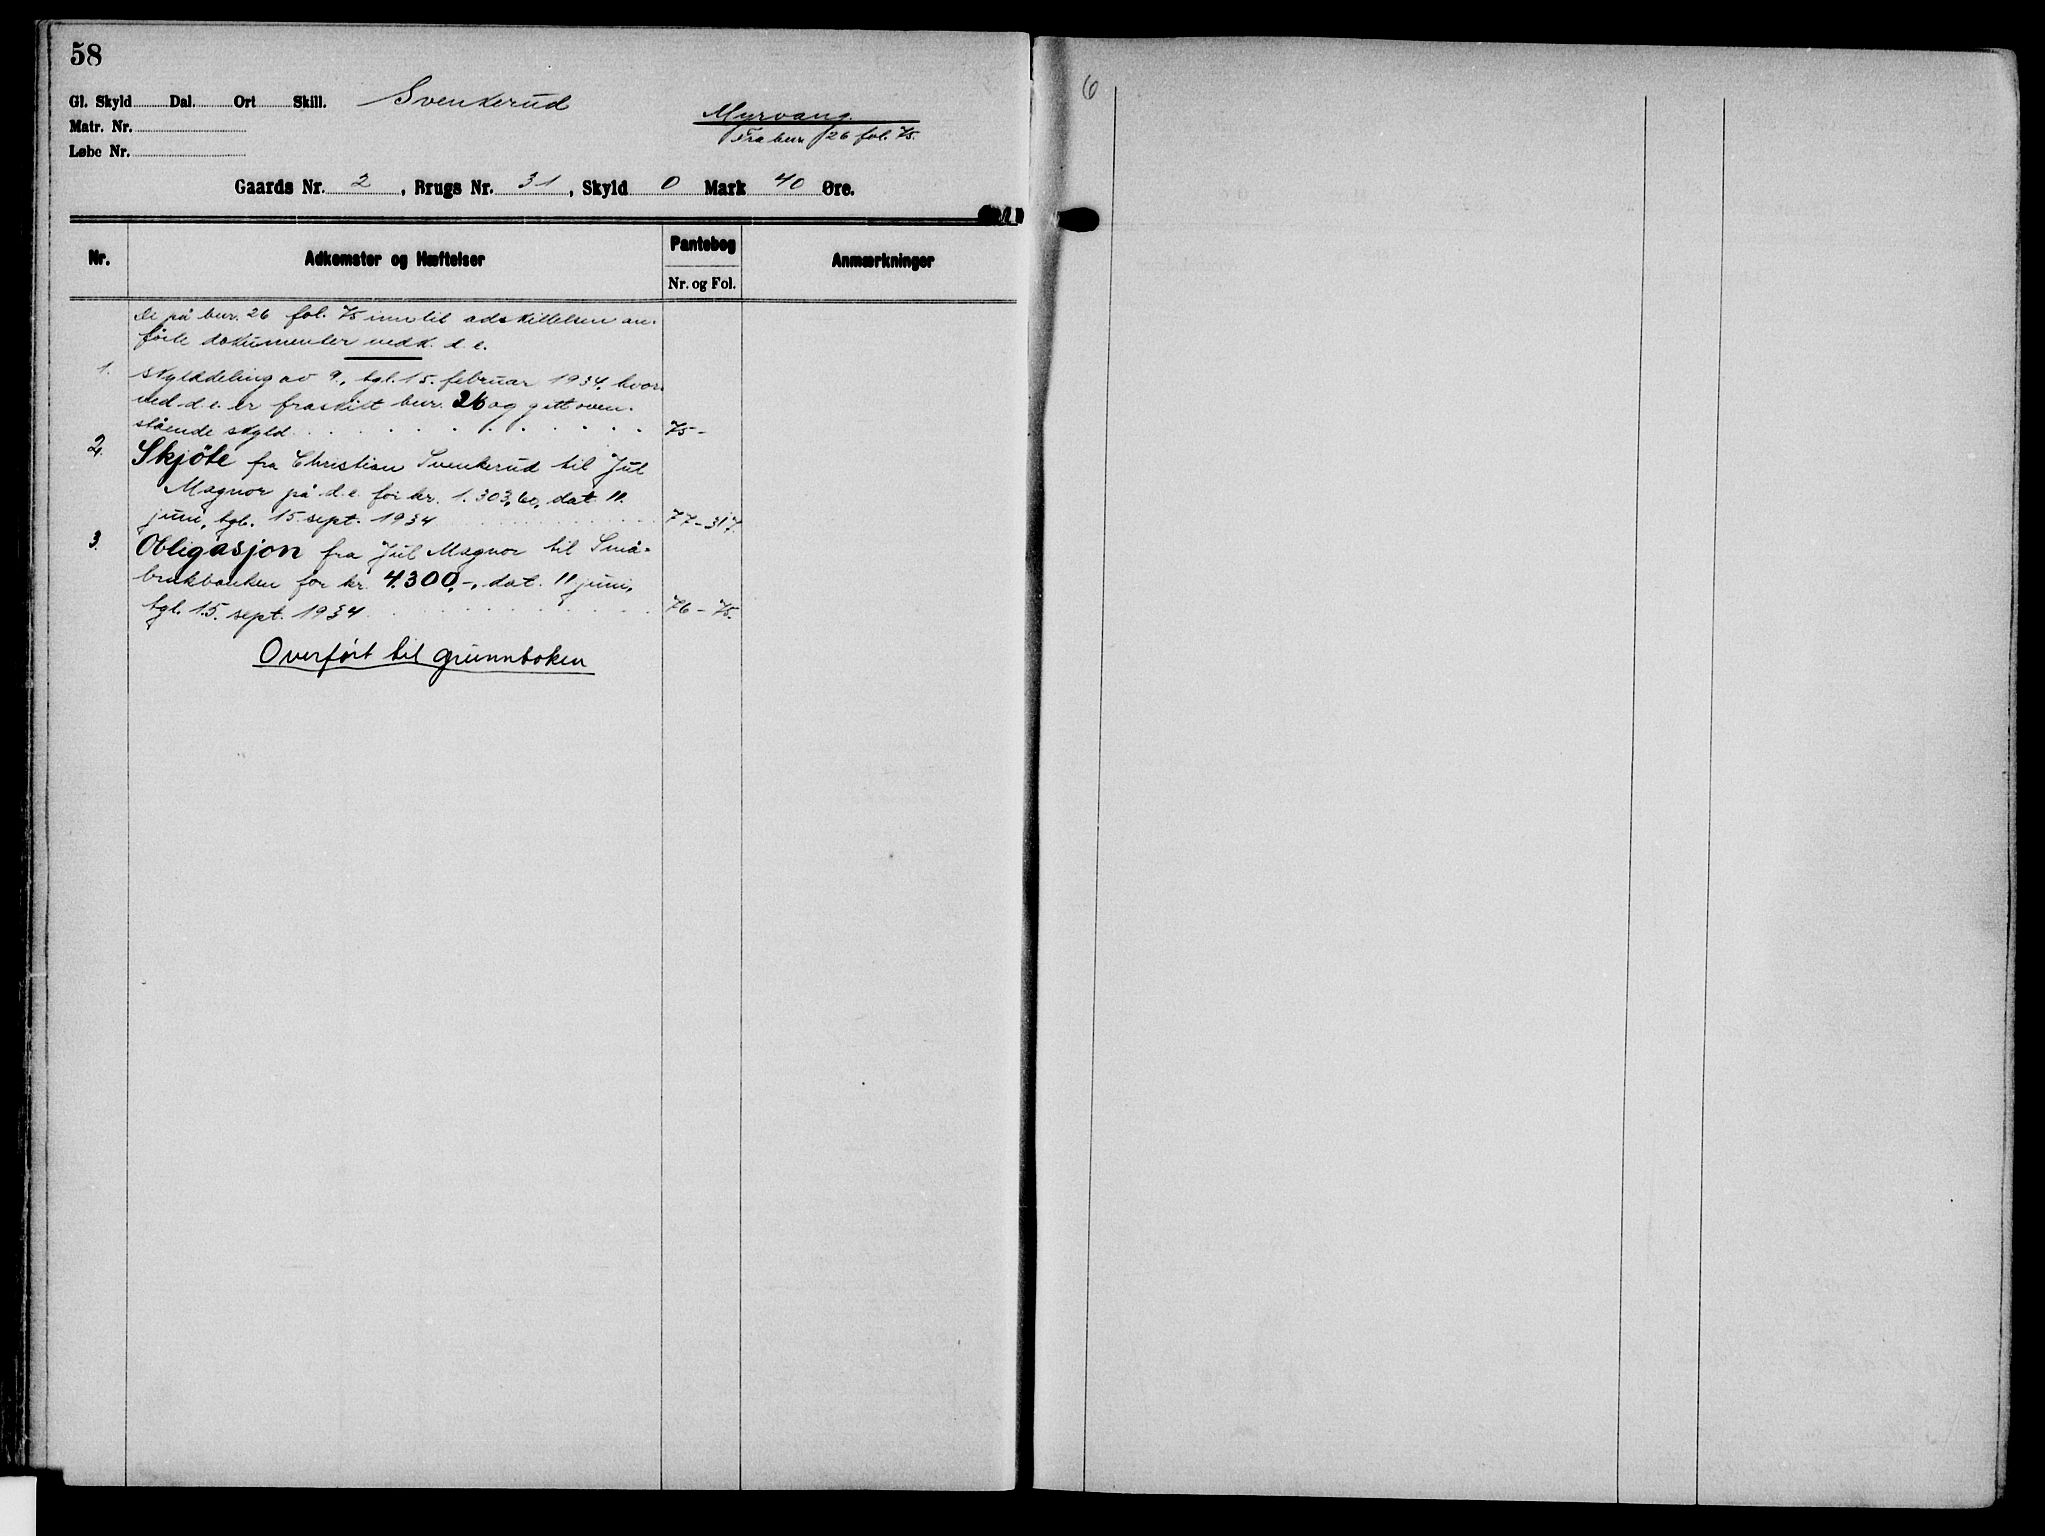 58
Gl. Skyld Dal. Ort Skill. Svenkerud
Matr. Nr.
Løbe Nr.
Myrvang.
Fra bnr 26 fol. 75.
Gaards Nr. 2, Brugs Nr. 31, Skyld 0 Mark 40 Øre.
Nr. Adkomster og Hæftelser Pantebog Anmærkninger
Nr. og Fol.
De på bnr. 26 fol. 75 inntil adskillelsen an-
førte dokumenter vedk. d. e.
1. Skylddeling av 9., tgl. 15. februar 1934, hvor-
ved d. e. er fraskilt bnr. 26 og gitt oven-
stående skyld. 75 -
2. Skjöte fra Christian Svenkerud til Jul
Magnor på d. e. for kr. 1.303,60, dat. 11.
juni, tgl. 15. sept. 1934 77 - 317.
3. Obligasjon fra Jul Magnor til Små-
brukbanken for kr. 4300,-, dat. 11 juni,
tgl. 15. sept. 1934. 76 - 75.
Overført til grunnboken
6